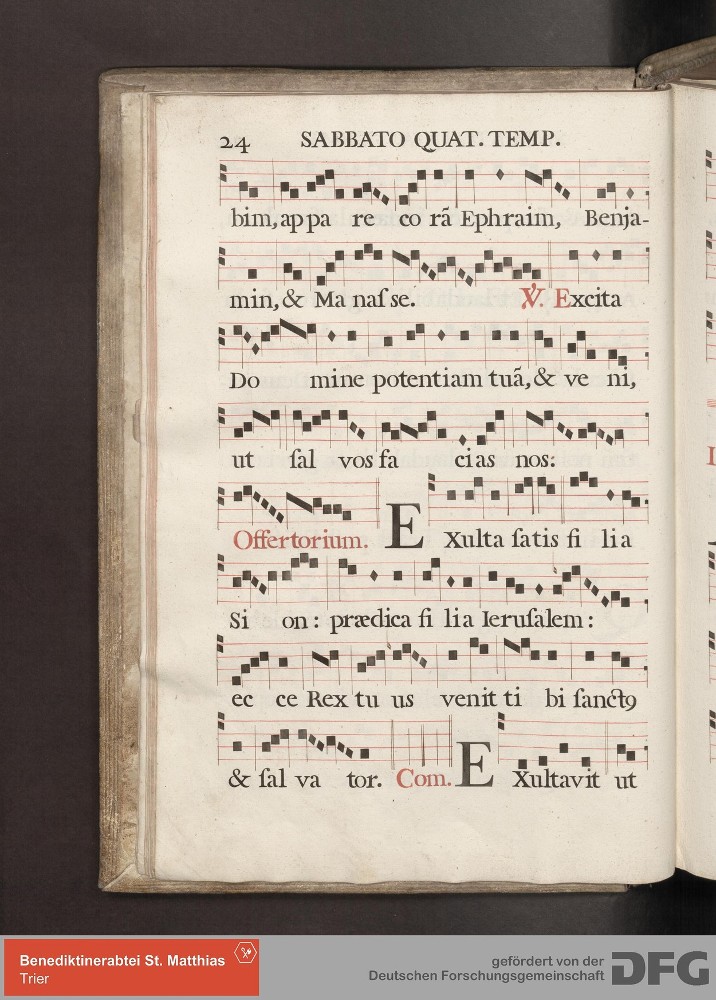 24 SABBATO QUAT. TEMP.
bim, ap pa re co rã Ephraim, Benja-
min, & Ma naſ se. ℣. Excita
Do mine potentiam tuã, & ve ni,
ut ſal vos fa ci as nos:
Offertorium. E Xulta ſatis fi li a
Si on: prædica fi li a Ieruſalem:
ec ce Rex tu us venit ti bi ſanctꝰ
& ſal va tor. Com. E Xultavit ut
Benediktinerabtei St. Matthias
Trier
gefördert von der
Deutschen Forschungsgemeinschaft DFG